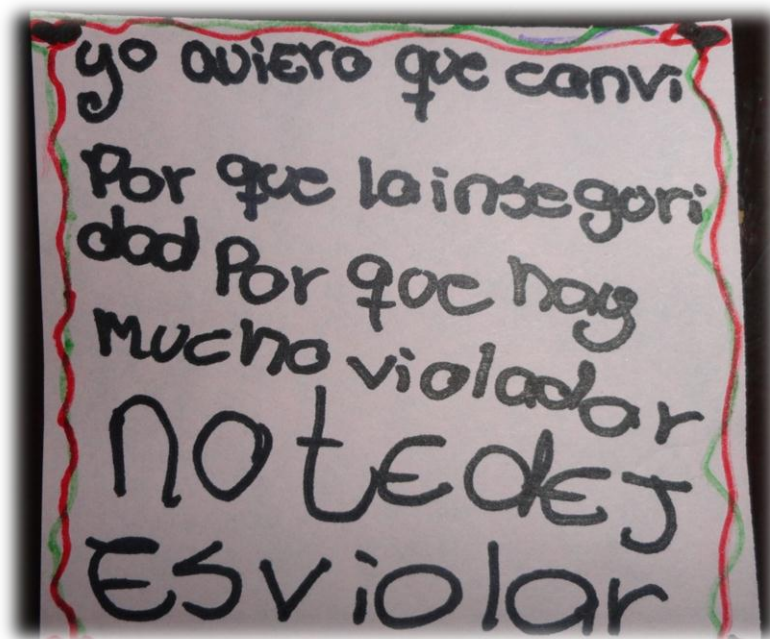 yo quiero que canvi
Por que la insegori
dad Por que hay
mucho violador
no te dej
es violar